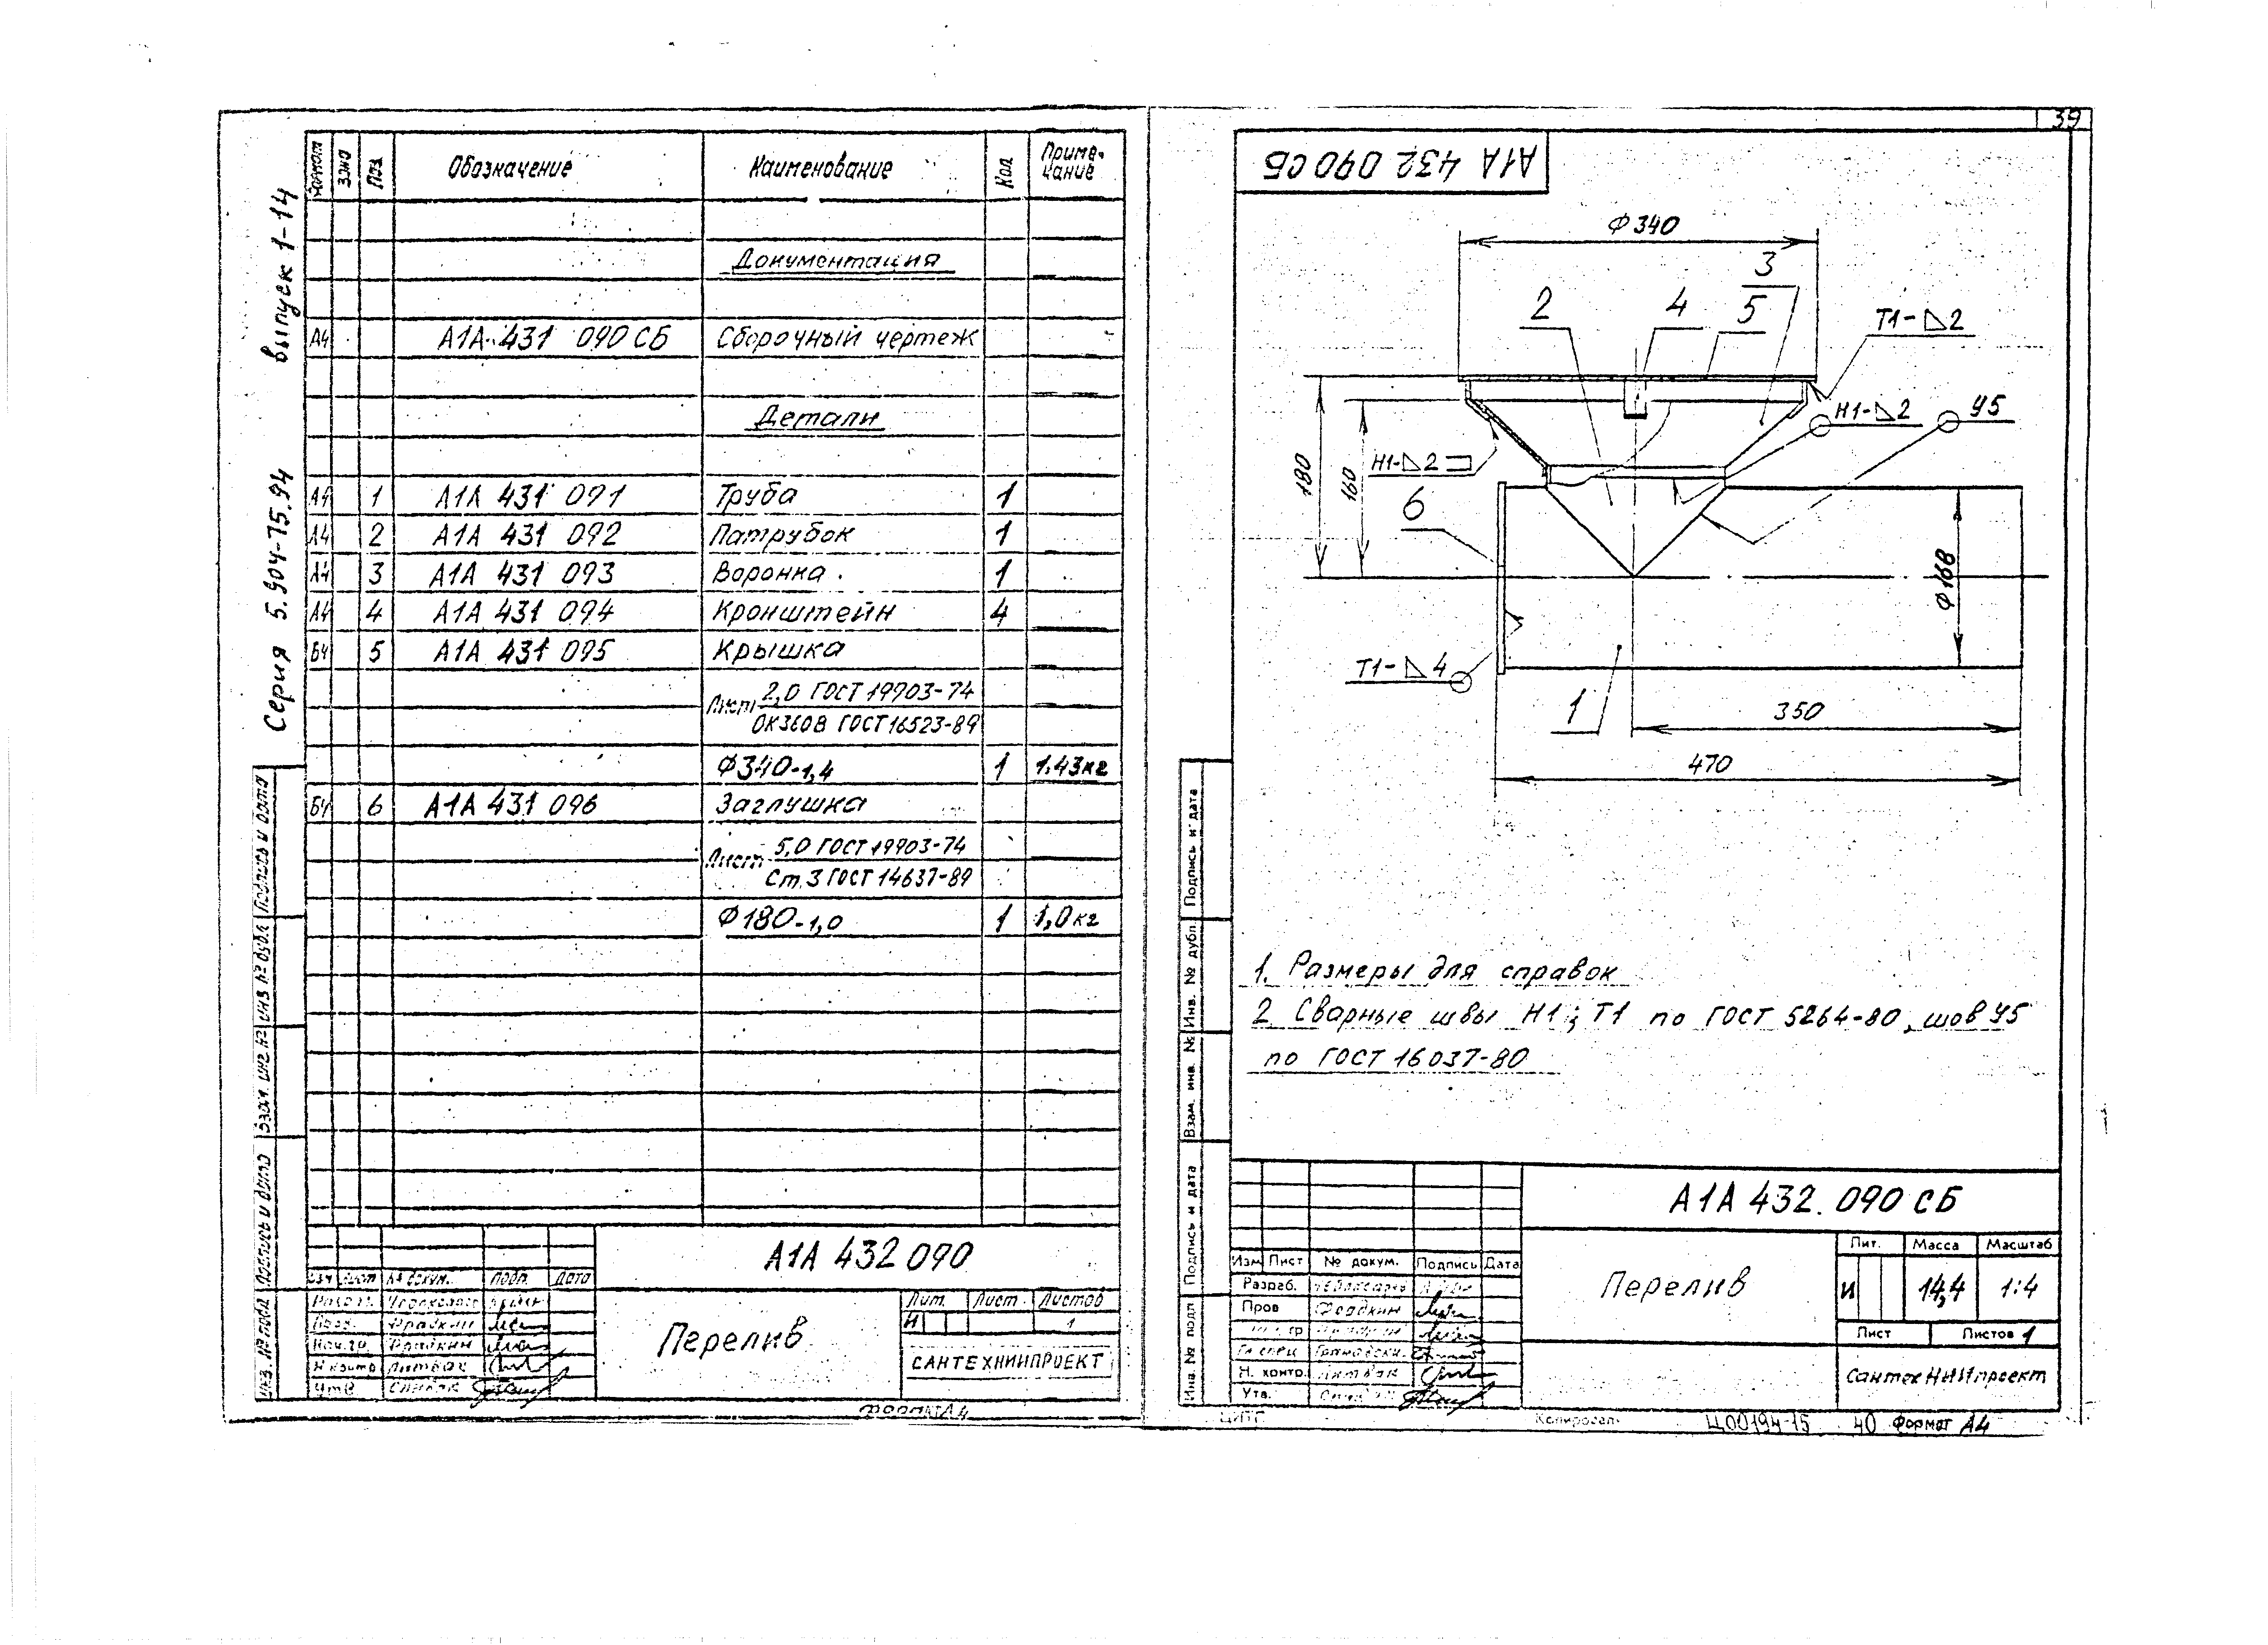 39
Серия 5.904-75.94 выпуск 1-14
Формат Зона Поз. Обозначение Наименование Кол. Приме-
чание
Документация
А4 А1А 431 090 СБ Сборочный чертеж
Детали
А4 1 А1А 431 091 Труба 1
А4 2 А1А 431 092 Патрубок 1
А4 3 А1А 431 093 Воронка 1
А4 4 А1А 431 094 Кронштейн 4
БЧ 5 А1А 431 095 Крышка
Лист 2,0 ГОСТ 19903-74
ОК360В ГОСТ 16523-89
Ф340-1,4 1 1.43кг
БЧ 6 А1А 431 096 Заглушка
Лист 5,0 ГОСТ 19903-74
Ст.3 ГОСТ 14637-89
Ф180-1,0 1 1,0кг
Инв. № подл. Подпись и дата Взам. инв. № Инв. № дубл. Подпись и дата
А1А 432 090
Изм Лист № докум. Подп. Дата
Перелив
Лит. Лист Листов
И 1
Пров. Фрадкин
Нач. гр. Фрадкин
Н контр Литвак
Утв. Спивак
САНТЕХНИИПРОЕКТ
Формат А4
А1А 432 090 СБ
Ф 340
3
2 4 5
Т1-◺2
Н1-◺2
У5
180
160
Н1-◺2
6
Ф168
Т1-◺4
1
350
470
1. Размеры для справок
2 Сварные швы Н1; Т1 по ГОСТ 5264-80, шов У5
по ГОСТ 16037-80
Инв. № подл Подпись и дата Взам. инв. № Инв. № дубл. Подпись и дата
А1А 432. 090 СБ
Изм Лист № докум. Подпись Дата
Перелив
Лит. Масса Масштаб
И 14,4 1:4
Разраб.
Пров Фрадкин
Гл спец
Н. контр. Литвак
Утв.
Лист Листов 1
СантехНИИпроект
Копировал
Ц00194-15 40 Формат А4